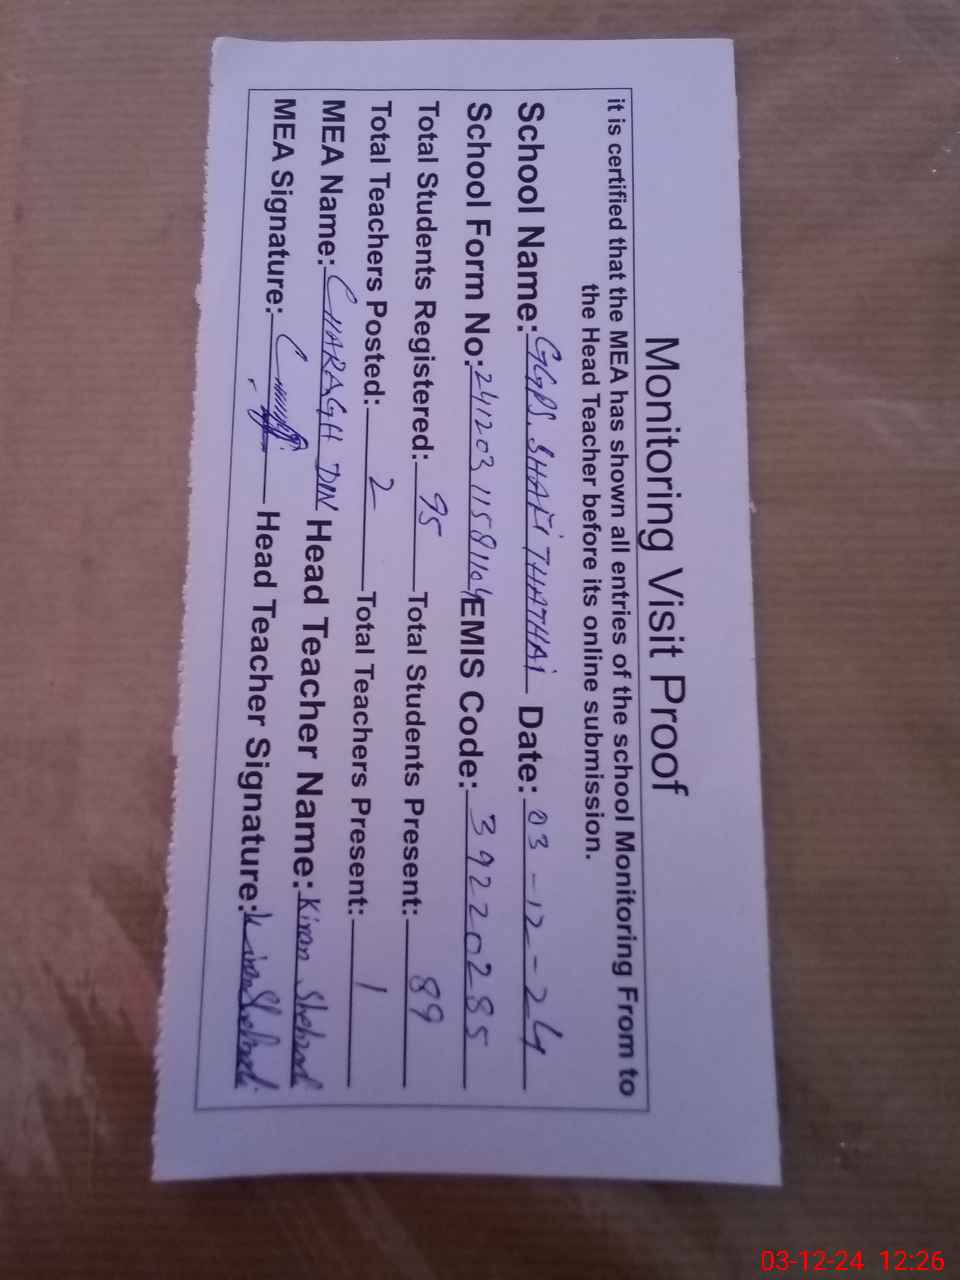 Monitoring Visit Proof
it is certified that the MEA has shown all entries of the school Monitoring From to
the Head Teacher before its online submission.
School Name: GGPS. SHAKI THATHAI Date: 03-12-24
School Form No: 24120311581104 EMIS Code: 39220285
Total Students Registered: 95 Total Students Present: 89
Total Teachers Posted: 2 Total Teachers Present: 1
MEA Name: CHARAGH DIN Head Teacher Name: Kiran Shehzad
MEA Signature: Head Teacher Signature: Kiran Shehzadi
03-12-24 12:26